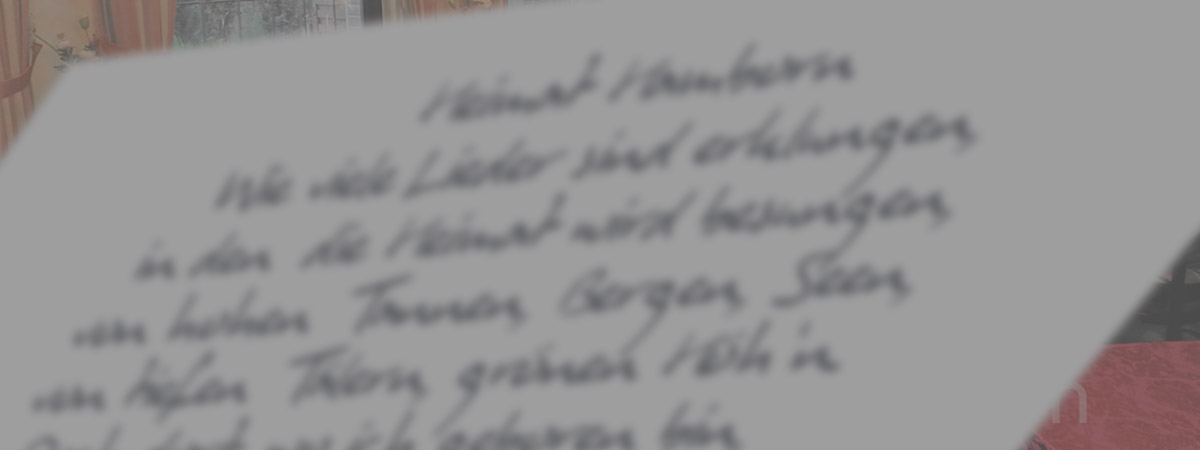 Heimat Hamborn
Wie viele Lieder sind erklungen,
in den die Heimat wird besungen,
von hohen Tannen, Bergen, Seen,
von tiefen Tälern, grünen Höh'n.
Doch dort wo ich geboren bin
n